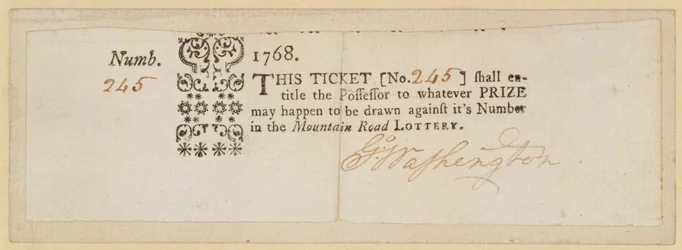 Numb.
245
1768.
THIS TICKET [No. 245] ſhall en-
title the Poſſeſſor to whatever PRIZE
may happen to be drawn againſt it's Number
in the Mountain Road LOTTERY.
Go Washington